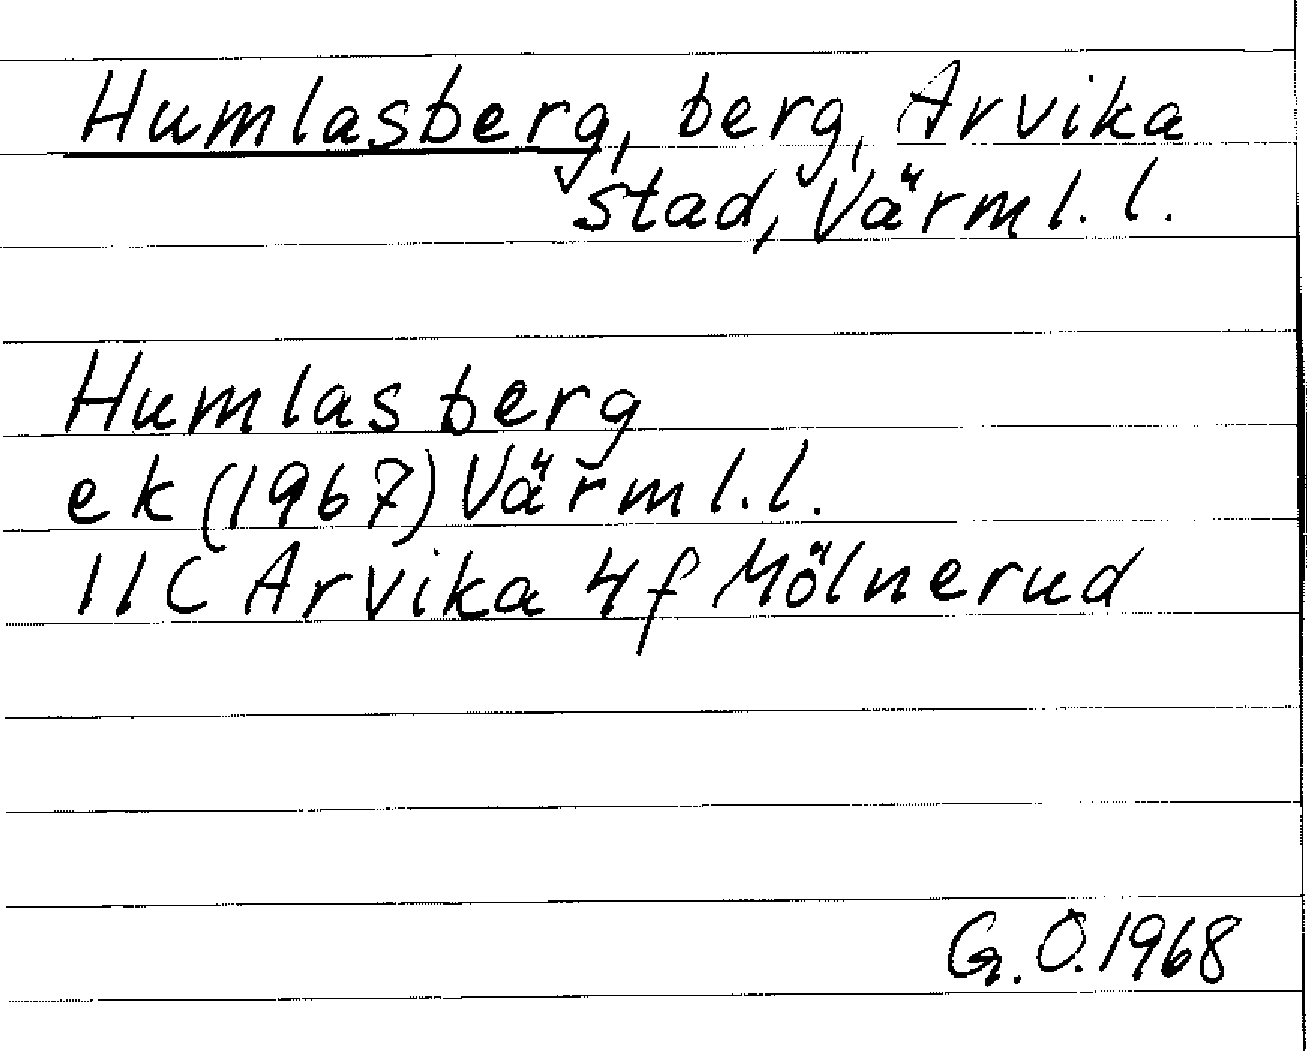 Humlasberg, berg, Arvika
stad, Värml. l.
Humlasberg
ek (1967) Värml. l.
11C Arvika 4f Mölnerud
G. Ö. 1968